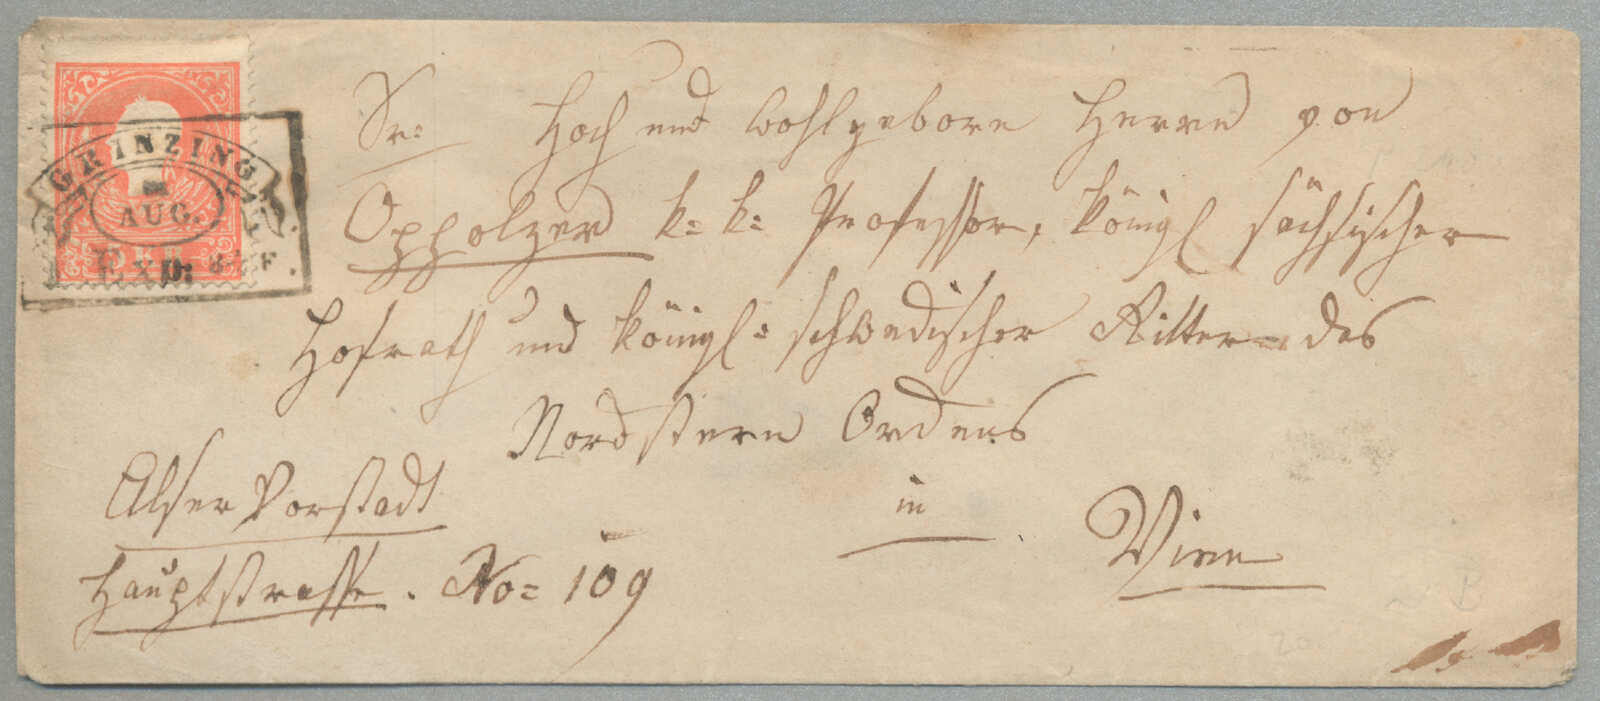 GRINZING
AUG.
EXP:
Sr: Hoch und Wohlgeboren Herrn von
Oppolzer k: k: Professor, königl sächsischer
Hofrath und königl: schwedischer Ritter des
Nordstern Ordens
in
Wien
Alser Vorstadt
Hauptstrasse. No= 109